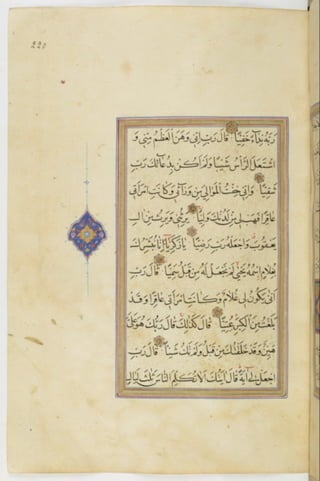 220
رَبَّهُ نِدَاءً خَفِيًّا قَالَ رَبِّ إِنِّي وَهَنَ الْعَظْمُ مِنِّي وَ
اشْتَعَلَ الرَّأْسُ شَيْبًا وَلَمْ أَكُنْ بِدُعَائِكَ رَبِّ
شَقِيًّا وَإِنِّي خِفْتُ الْمَوَالِيَ مِنْ وَرَائِي وَكَانَتِ امْرَأَتِي
عَاقِرًا فَهَبْ لِي مِنْ لَدُنْكَ وَلِيًّا يَرِثُنِي وَيَرِثُ مِنْ آلِ
يَعْقُوبَ وَاجْعَلْهُ رَبِّ رَضِيًّا يَا زَكَرِيَّا إِنَّا نُبَشِّرُكَ
بِغُلَامٍ اسْمُهُ يَحْيَى لَمْ نَجْعَلْ لَهُ مِنْ قَبْلُ سَمِيًّا قَالَ رَبِّ
أَنَّى يَكُونُ لِي غُلَامٌ وَكَانَتِ امْرَأَتِي عَاقِرًا وَقَدْ
بَلَغْتُ مِنَ الْكِبَرِ عِتِيًّا قَالَ كَذَلِكَ قَالَ رَبُّكَ هُوَ عَلَيَّ
هَيِّنٌ وَقَدْ خَلَقْتُكَ مِنْ قَبْلُ وَلَمْ تَكُ شَيْئًا قَالَ رَبِّ
اجْعَلْ لِي آيَةً قَالَ آيَتُكَ أَلَّا تُكَلِّمَ النَّاسَ ثَلَاثَ لَيَالٍ